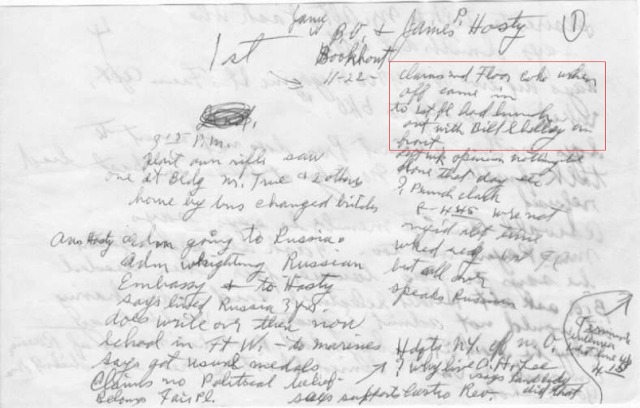 1st
Jamy B.V. & James P. Hosty
Bookhout
11-22-
1
claims 2nd Floor Coke when
off came in
to 1st fl had lunch
out with Bill Shelley in
front
3 15 P.M.
dont own rifle saw
one at Bldg Mr. True & 2 others
home by bus changed britches
Ans Hosty adm going to Russia
adm wrighting Russian
Embassy & to Hosty
says lived Russia 3 yrs.
does write over there now
School in Ft W. - to marines
says got usual medals
Claims no Political belief
belongs Fair Pl.
opinion nothing be
done that day etc
? Punch clock
8-4 45 were not
rigid abt time
wked reg 1st Fl
but all over
speaks Russian
Hdqts NY. off N.O.
? why live O.H.
says Landlady
did that
says supports Castro Rev.
4